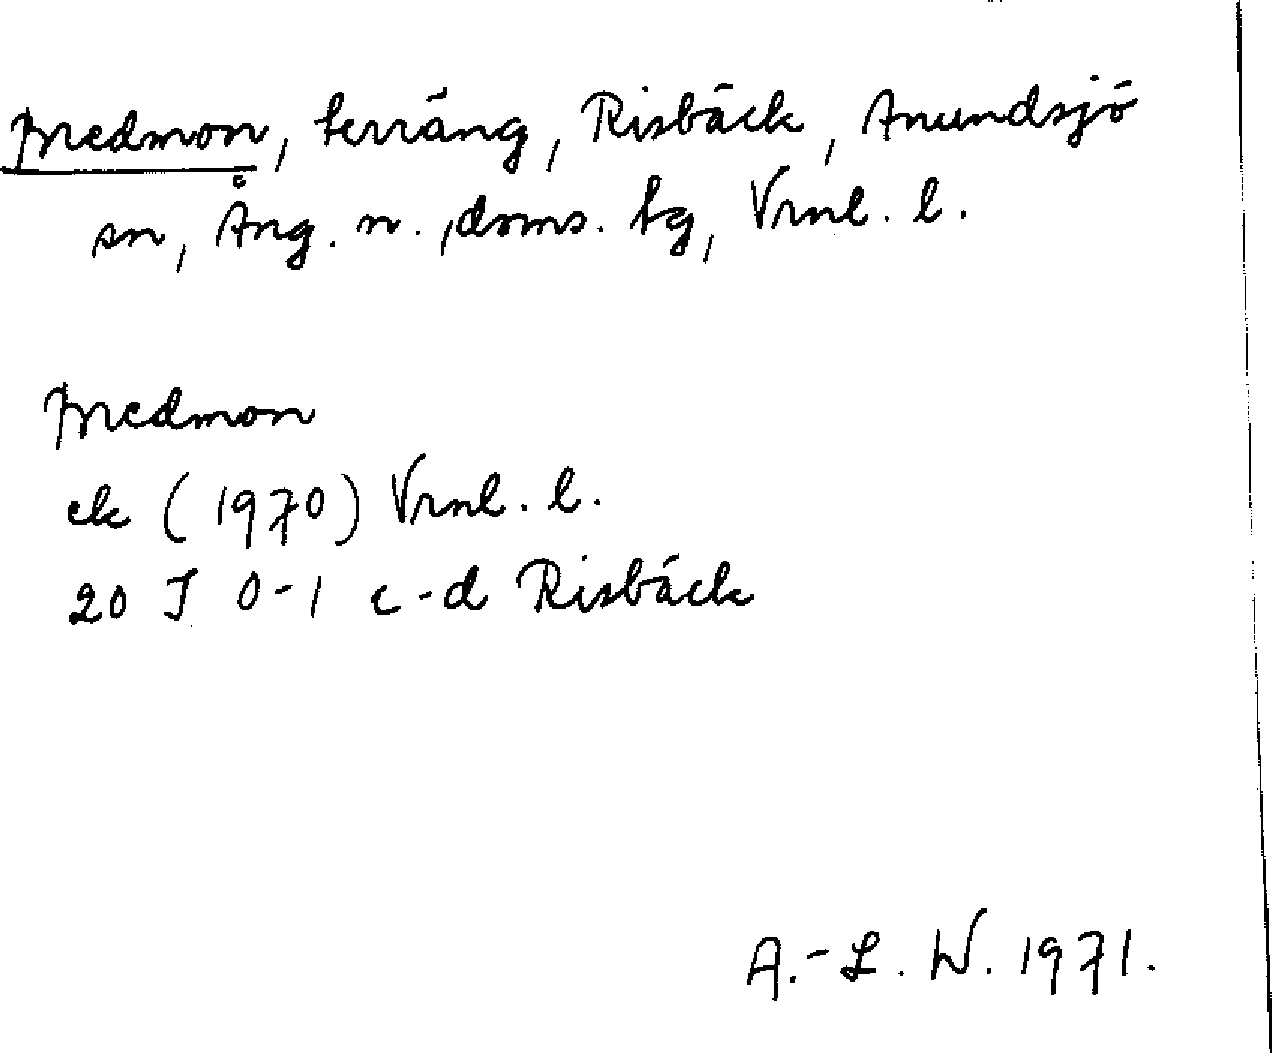 Medmon, terräng, Risbäck, Anundsjö
sn, Ång. n. ,doms. tg, Vrnl. l.
Medmon
ek (1970) Vrnl. l.
20 J 0-1 c-d Risbäck
A.-L. W. 1971.